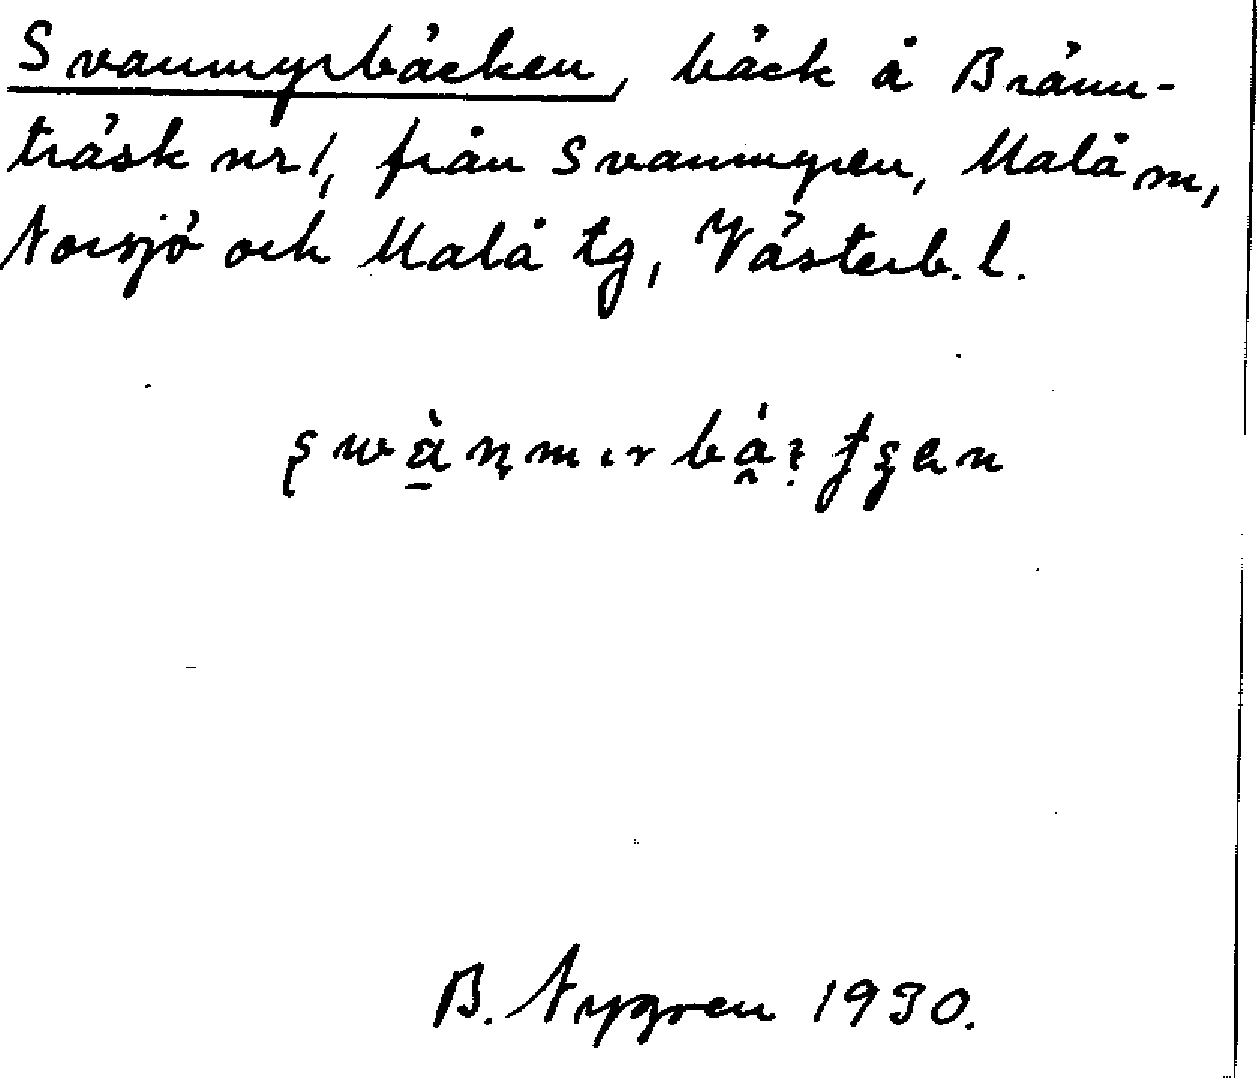 Svanmyrbäcken, bäck å Bränn-
träsk nr 1, från Svanmyren, Malå m,
Norsjö och Malå tg, Västerb. l.
B. Nygren 1930.